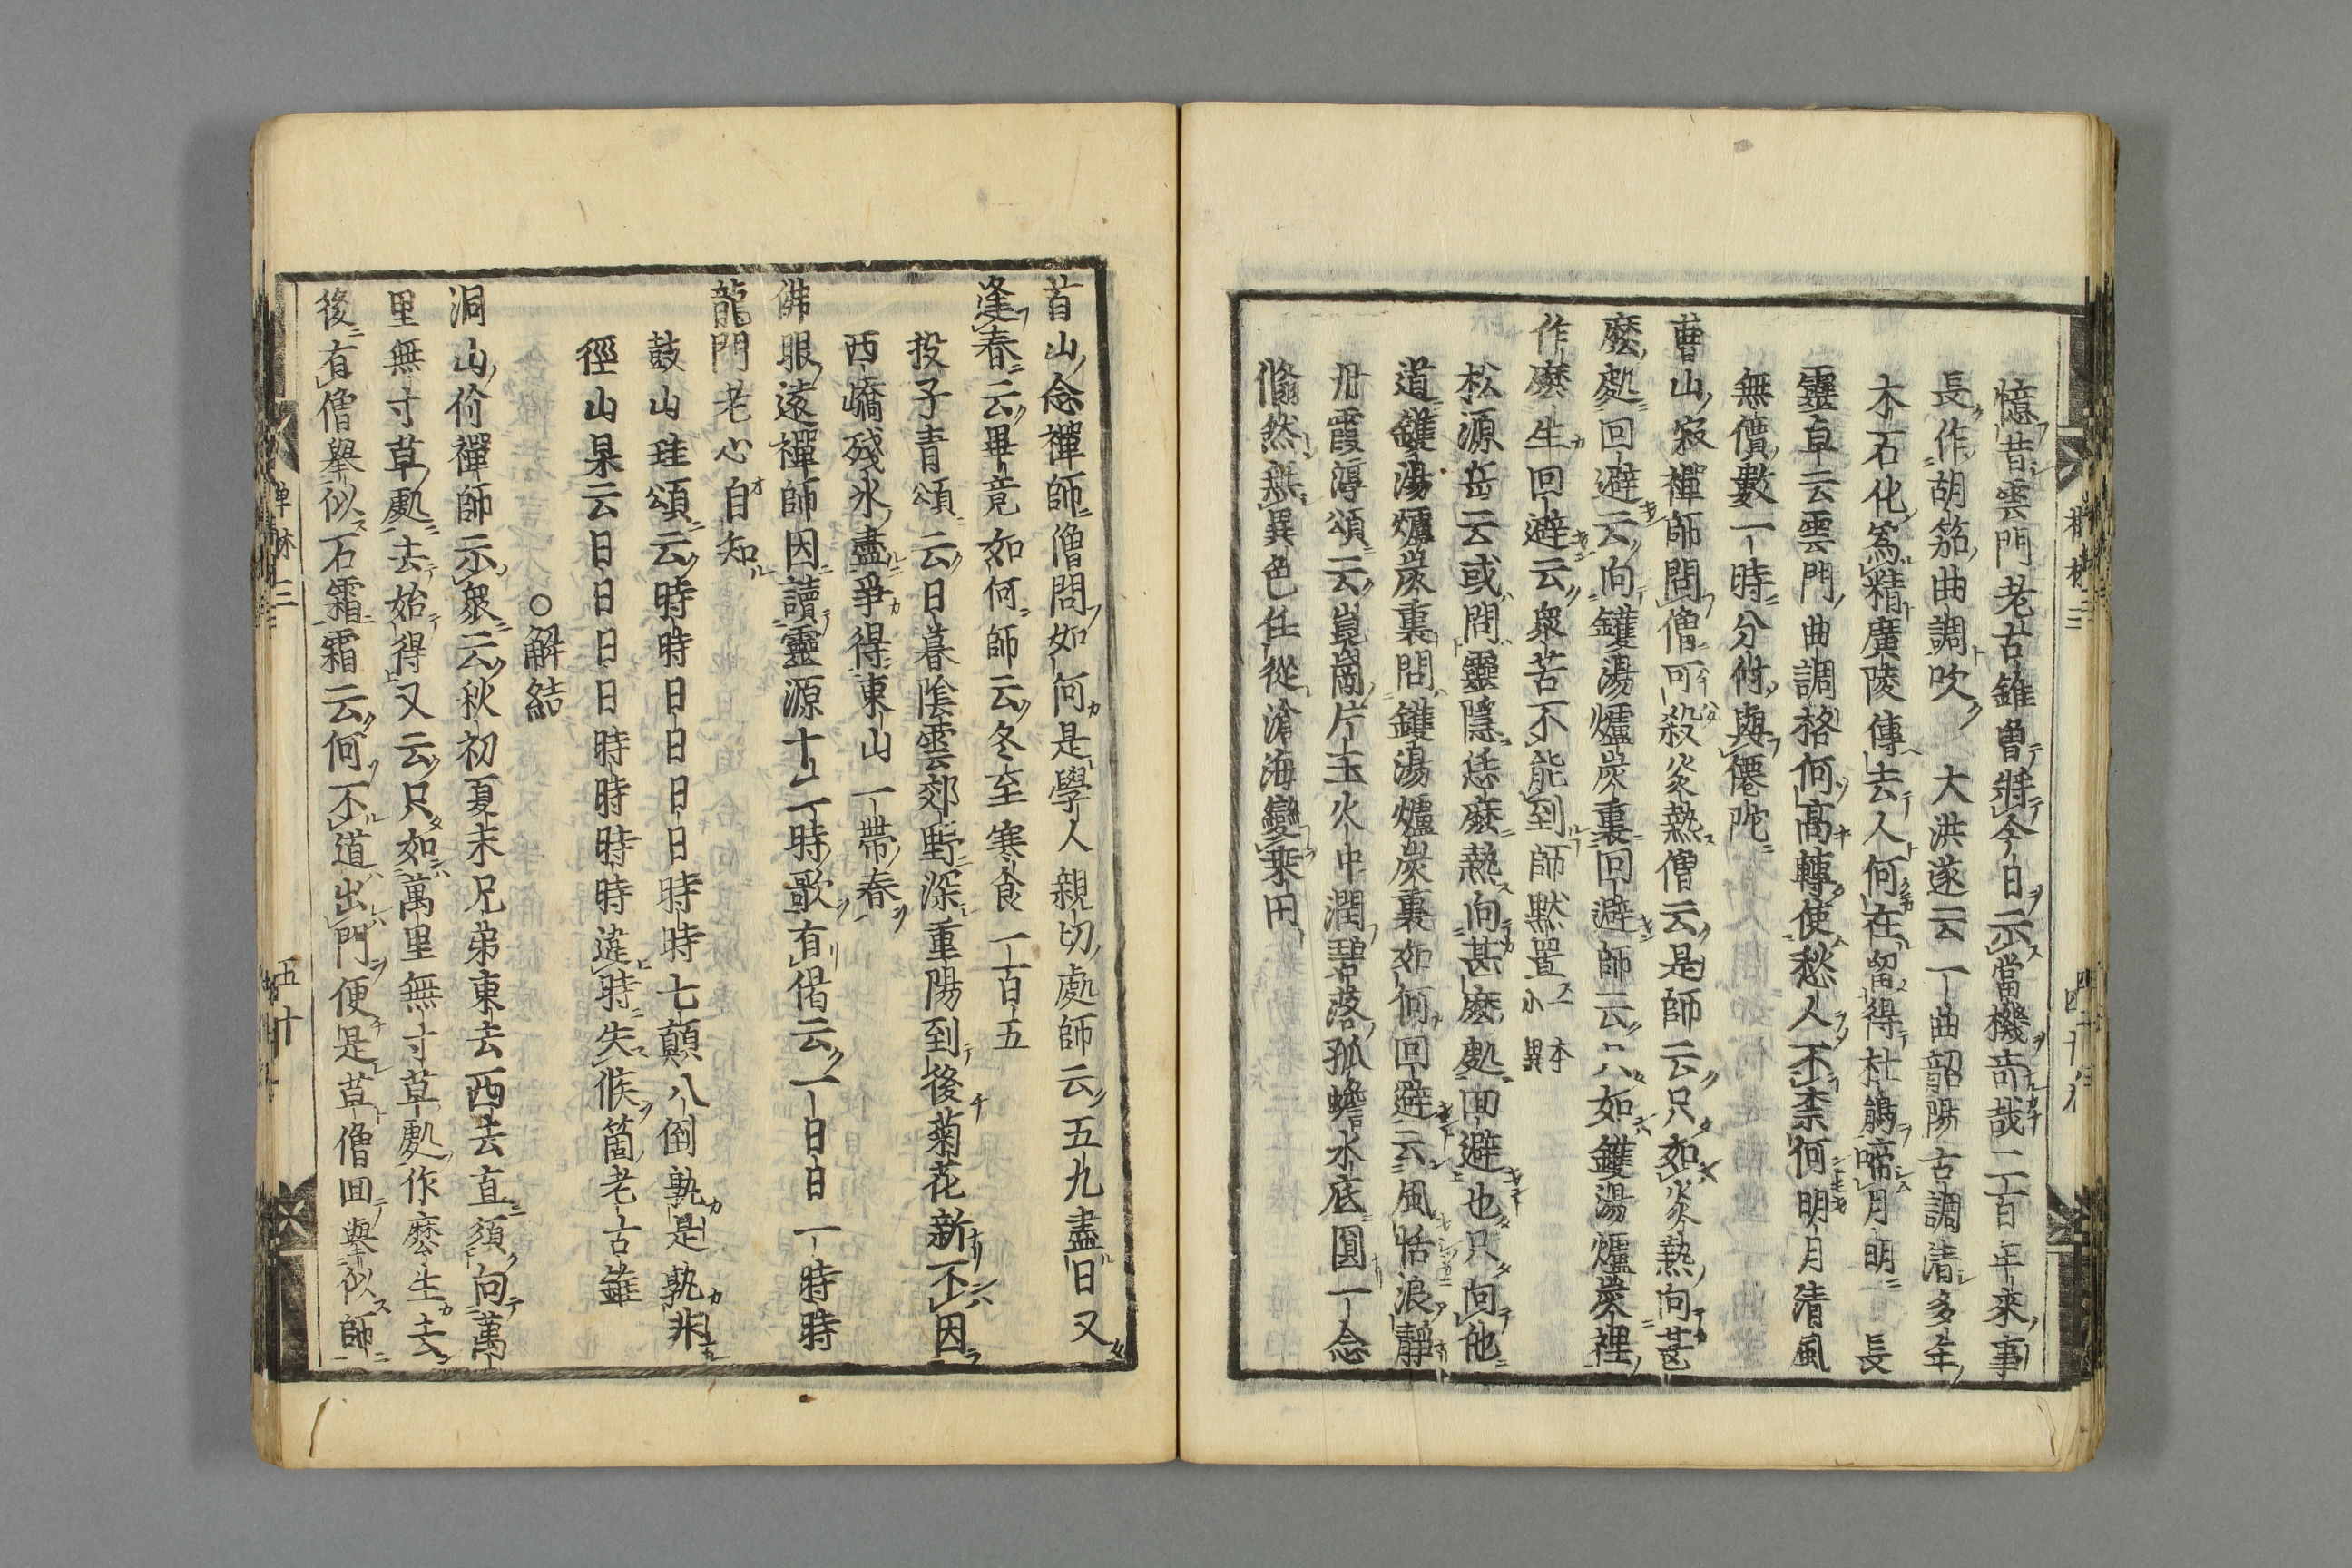 憶昔雲門老古錐曽將今日示當機奇哉二百年來事
長作胡笳曲調吹　大洪遂云一曲韶陽古調清多年
木石化為精廣陵傳去人何在留得杜鵑啼月明　長
靈卓云雲門曲調格何高轉使愁人不柰何明月清風
無價數一時分付與僊陀
曹山寂禪師問僧可殺炎熱僧云是師云只如炎熱向甚
麽処回避云向鑊湯爐炭裏回避師云只如鑊湯爐炭裡
作麽生回避云衆苦不能到師默置
松源岳云或問靈隱恁麽熱向甚麽処回避也只向他
道鑊湯爐炭裏問鑊湯爐炭裏如何回避云風恬浪靜
丹霞淳頌云崑崗片玉火中潤碧落孤蟾水底圓一念
翛然無異色任從滄海變桒田
首山念禪師僧問如何是學人親切處師云五九盡日又
逢春云畢竟如何師云冬至寒食一百五
投子青頌云日暮陰雲郊野深重陽到後菊花新不因
西嶠殘氷盡爭得東山一帶春
佛眼遠禪師因讀靈源十二時歌有偈云一日日一時時
龍門老心自知
鼓山珪頌云時時日日日日時時七顛八倒孰是孰非
徑山杲云日日日日時時時時違時失候箇老古錐
○解結
洞山价禪師示衆云秋初夏末兄弟東去西去直須向萬
里無寸草処去始得又云只如萬里無寸草処作麽生去
後有僧舉似石霜霜云何不道出門便是草僧回舉似師
五十